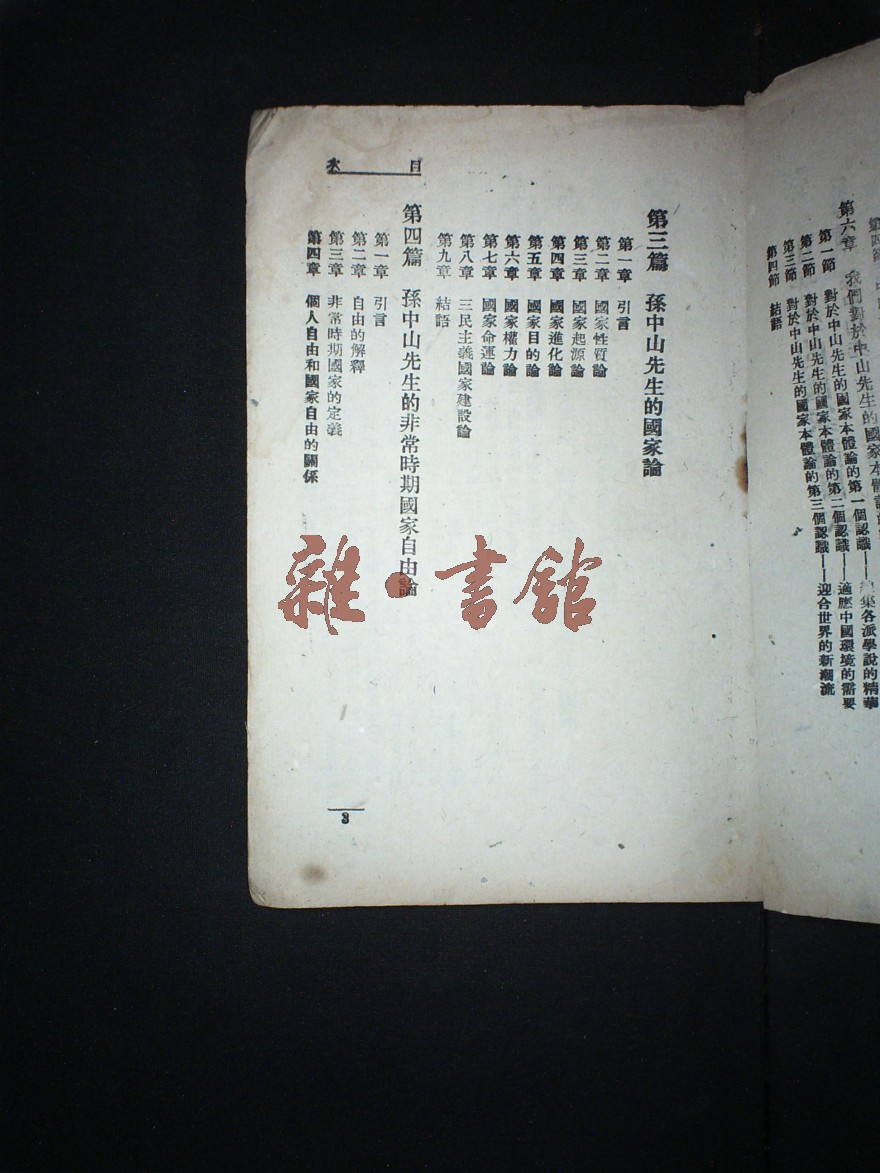 第六章 我們對於中山先生的國家本體論
第一節 對於中山先生的國家本體論的第一個認識——集各派學說的精華
第二節 對於中山先生的國家本體論的第二個認識——適應中國環境的需要
第三節 對於中山先生的國家本體論的第三個認識——迎合世界的新潮流
第四節 結語
目次
第三篇 孫中山先生的國家論
第一章 引言
第二章 國家性質論
第三章 國家起源論
第四章 國家進化論
第五章 國家目的論
第六章 國家權力論
第七章 國家命運論
第八章 三民主義國家建設論
第九章 結語
第四篇 孫中山先生的非常時期國家自由論
第一章 引言
第二章 自由的解釋
第三章 非常時期國家的定義
第四章 個人自由和國家自由的關係
3
雜·書館